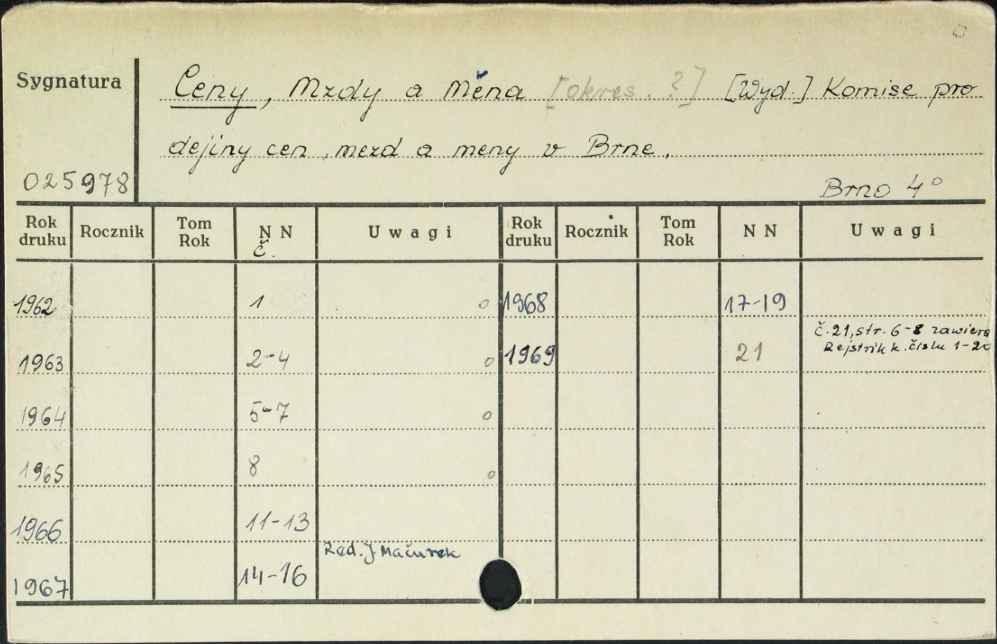 Sygnatura
Ceny, Mzdy a Měna [okres. ?] [Wyd.] Komise pro
dejiny cen, mezd a meny v Brne.
025978
Brno 4°
Rok druku Rocznik Tom Rok N N Uwagi Rok druku Rocznik Tom Rok N N Uwagi
č.
1962 1 1968 17-19
č. 21, str. 6-8 zawiera
1963 2-4 1969 21 Rejstrik k. čislu 1-20
1964 5-7
1965 8
1966 11-13
Red. J Mačurek
1967 14-16